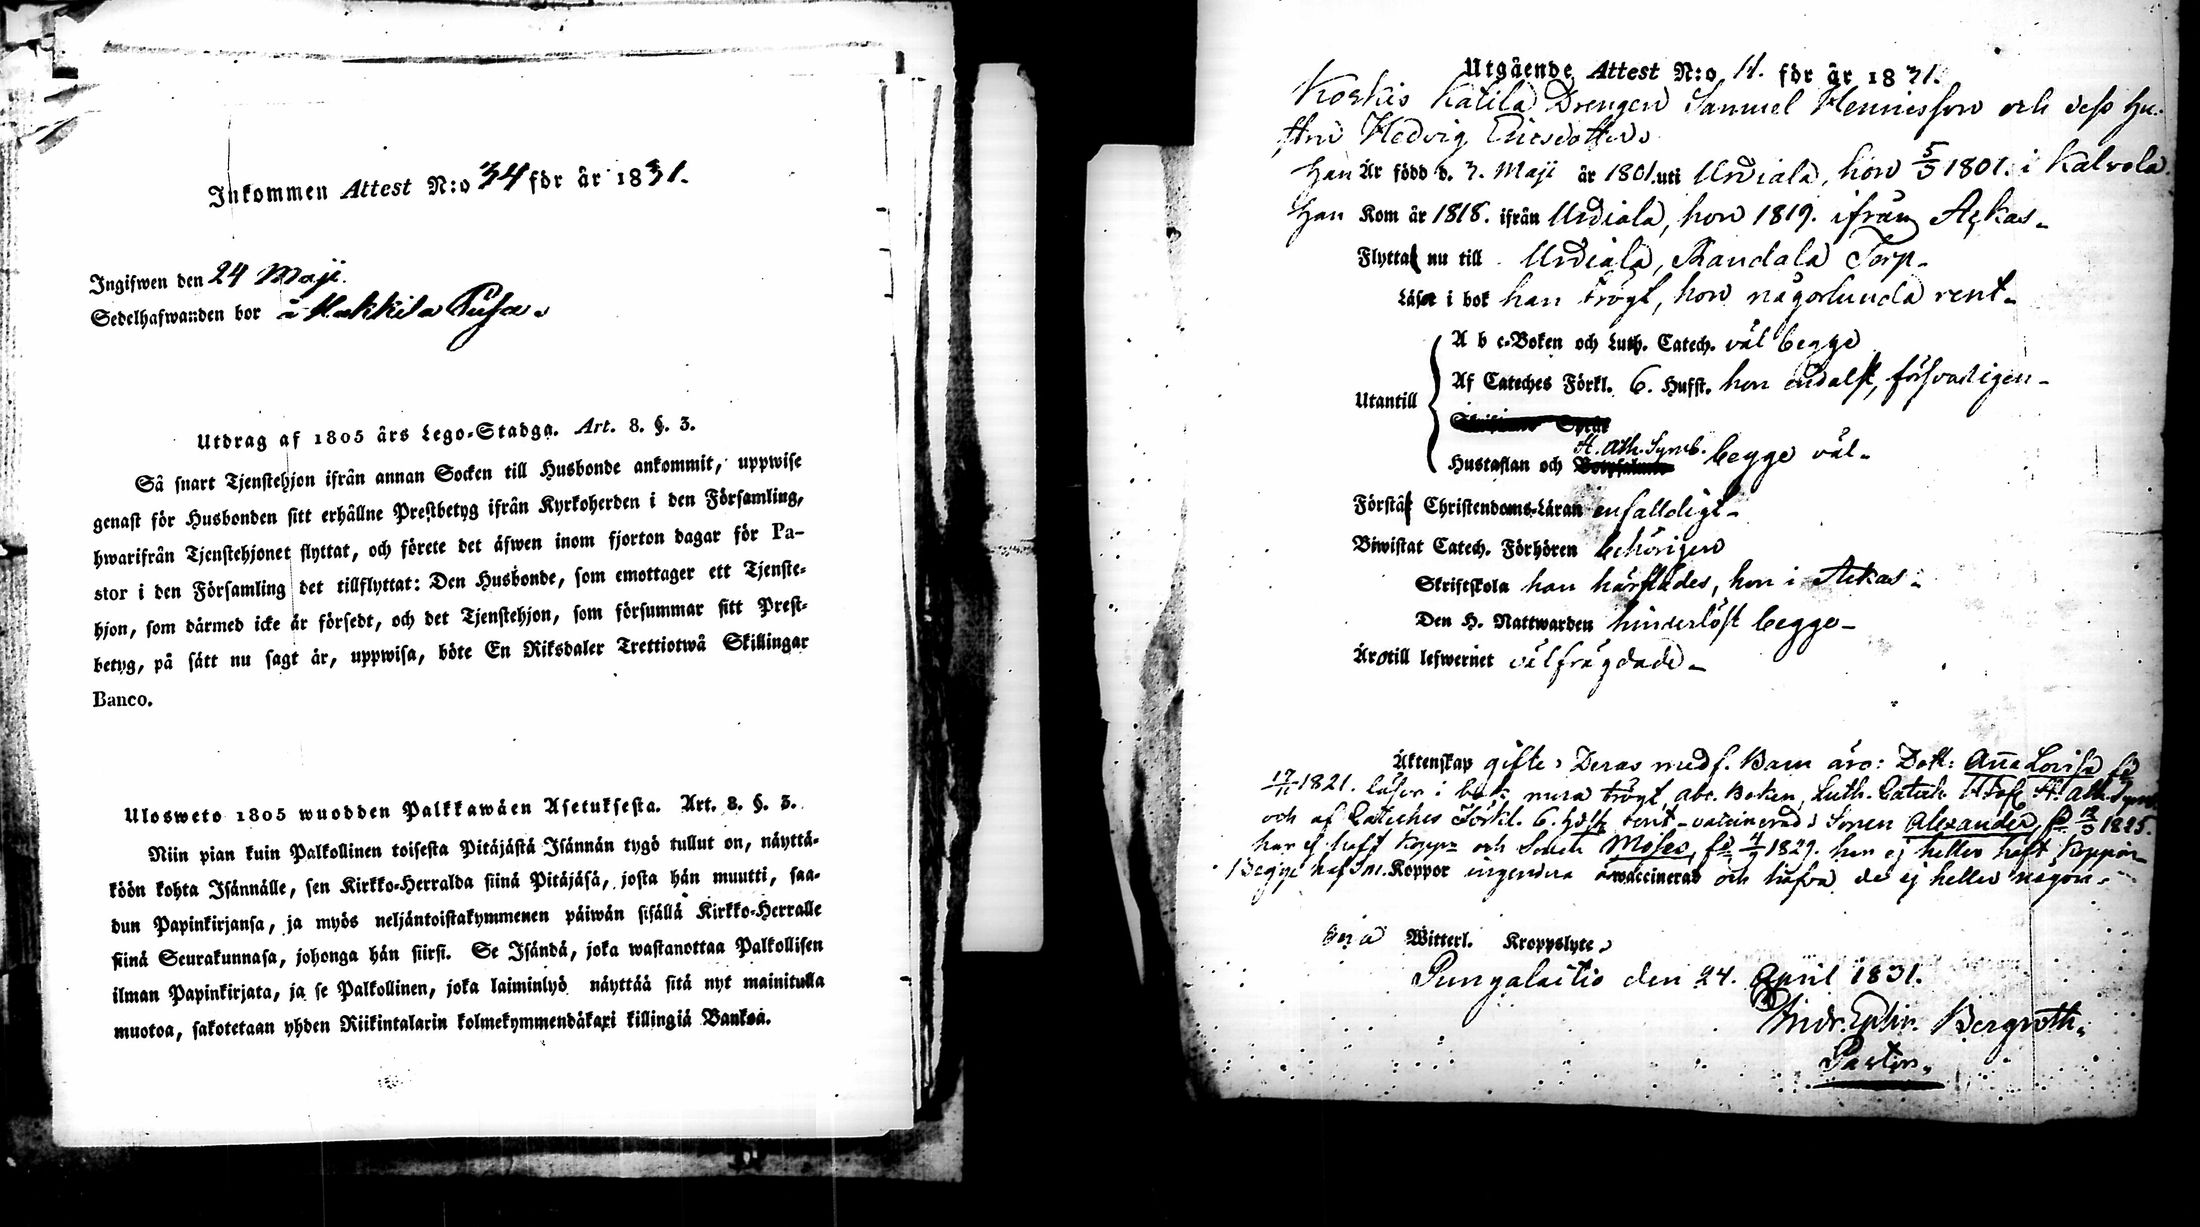 Inkommen Attest N:o 34 för år 1831.
Ingifwen den 24 Maji.
Sedelhafwanden bor å Makkila Pusa.
Utdrag af 1805 års Lego-Stadga. Art. 8. §. 3.
Så snart Tjenstehjon ifrån annan Socken till Husbonde ankommit, uppwise
genast för Husbonden sitt erhållne Prestbetyg ifrån Kyrkoherden i den Församling,
hwarifrån Tjenstehjonet flyttat, och förete det äfwen inom fjorton dagar för Pa-
stor i den Församling det tillflyttat: Den Husbonde, som emottager ett Tjenste-
hjon, som därmed icke är försedt, och det Tjenstehjon, som försummar sitt Prest-
betyg, på sätt nu sagt är, uppwisa, böte En Riksdaler Trettiotwå Skillingar
Banco.
Ulosweto 1805 wuodden Palkkawäen Asetuksesta. Art. 8. §. 3.
Niin pian kuin Palkollinen toisesta Pitäjästä Isännän tygö tullut on, näyttä-
köön kohta Isännälle, sen Kirkko-Herralda siinä Pitäjäsä, josta hän muutti, saa-
dun Papinkirjansa, ja myös neljäntoistakymmenen päiwän sisällä Kirkko-Herralle
siinä Seurakunnasa, johonga hän siirsi. Se Isändä, joka wastanottaa Palkollisen
ilman Papinkirjata, ja se Palkollinen, joka laiminlyö näyttää sitä nyt mainitulla
muotoa, sakotetaan yhden Riikintalarin kolmekymmendäkaxi killingiä Bankoa.
Utgående Attest N:o 11. för år 1831.
Koskis Katila Drengen Samuel Hennicsson och dess Hu-
stru Hedvig Ericsdotter
Han Är född d. 3. Maji år 1801. uti Urdiala, hon 5/3 1801. i Kalvola.
Han Kom år 1818. ifrån Urdiala, hon 1819. ifrån Ackas.
Flytta nu till Urdiala, Torp.
Läser i bok han trögt, hon någorlunda rent.
Utantill
A b c-Boken och Luth. Catech. väl begge
Af Cateches Förkl. 6. Hufst. hon endast, försvarligen
H. Ath. Symb.
Hustaflan och begge väl.
Förstå Christendoms-Läran enfalldigt
Biwistat Catech. Förhören behörigen
Skriftskola han härstädes, hon i Ackas.
Den H. Nattwarden hinderlöst begge
Äro till lefwernet välfrägdade
Äktenskap gifte. Deras medf. Barn äro: Dott: Anna Lovisa fö
17/11 1821. läser i bok mera trögt, abc. Boken, Luth. Catech. H. Ath. Symb.
och af Cateches Förkl. 6. Hufst. vaccinerad; Sonen Alexander, fö 12/3 1825.
har ej haft Koppor och Sonen Moses, fö 4/9 1829. har ej heller haft Koppor
Begge haft n. Koppor vaccinerad och hafva de ej heller någon
Witterl. Kroppslyte.
Pungalaitio den 24. April 1831.
Andr. Ephr. Bergroth.
Pastor.